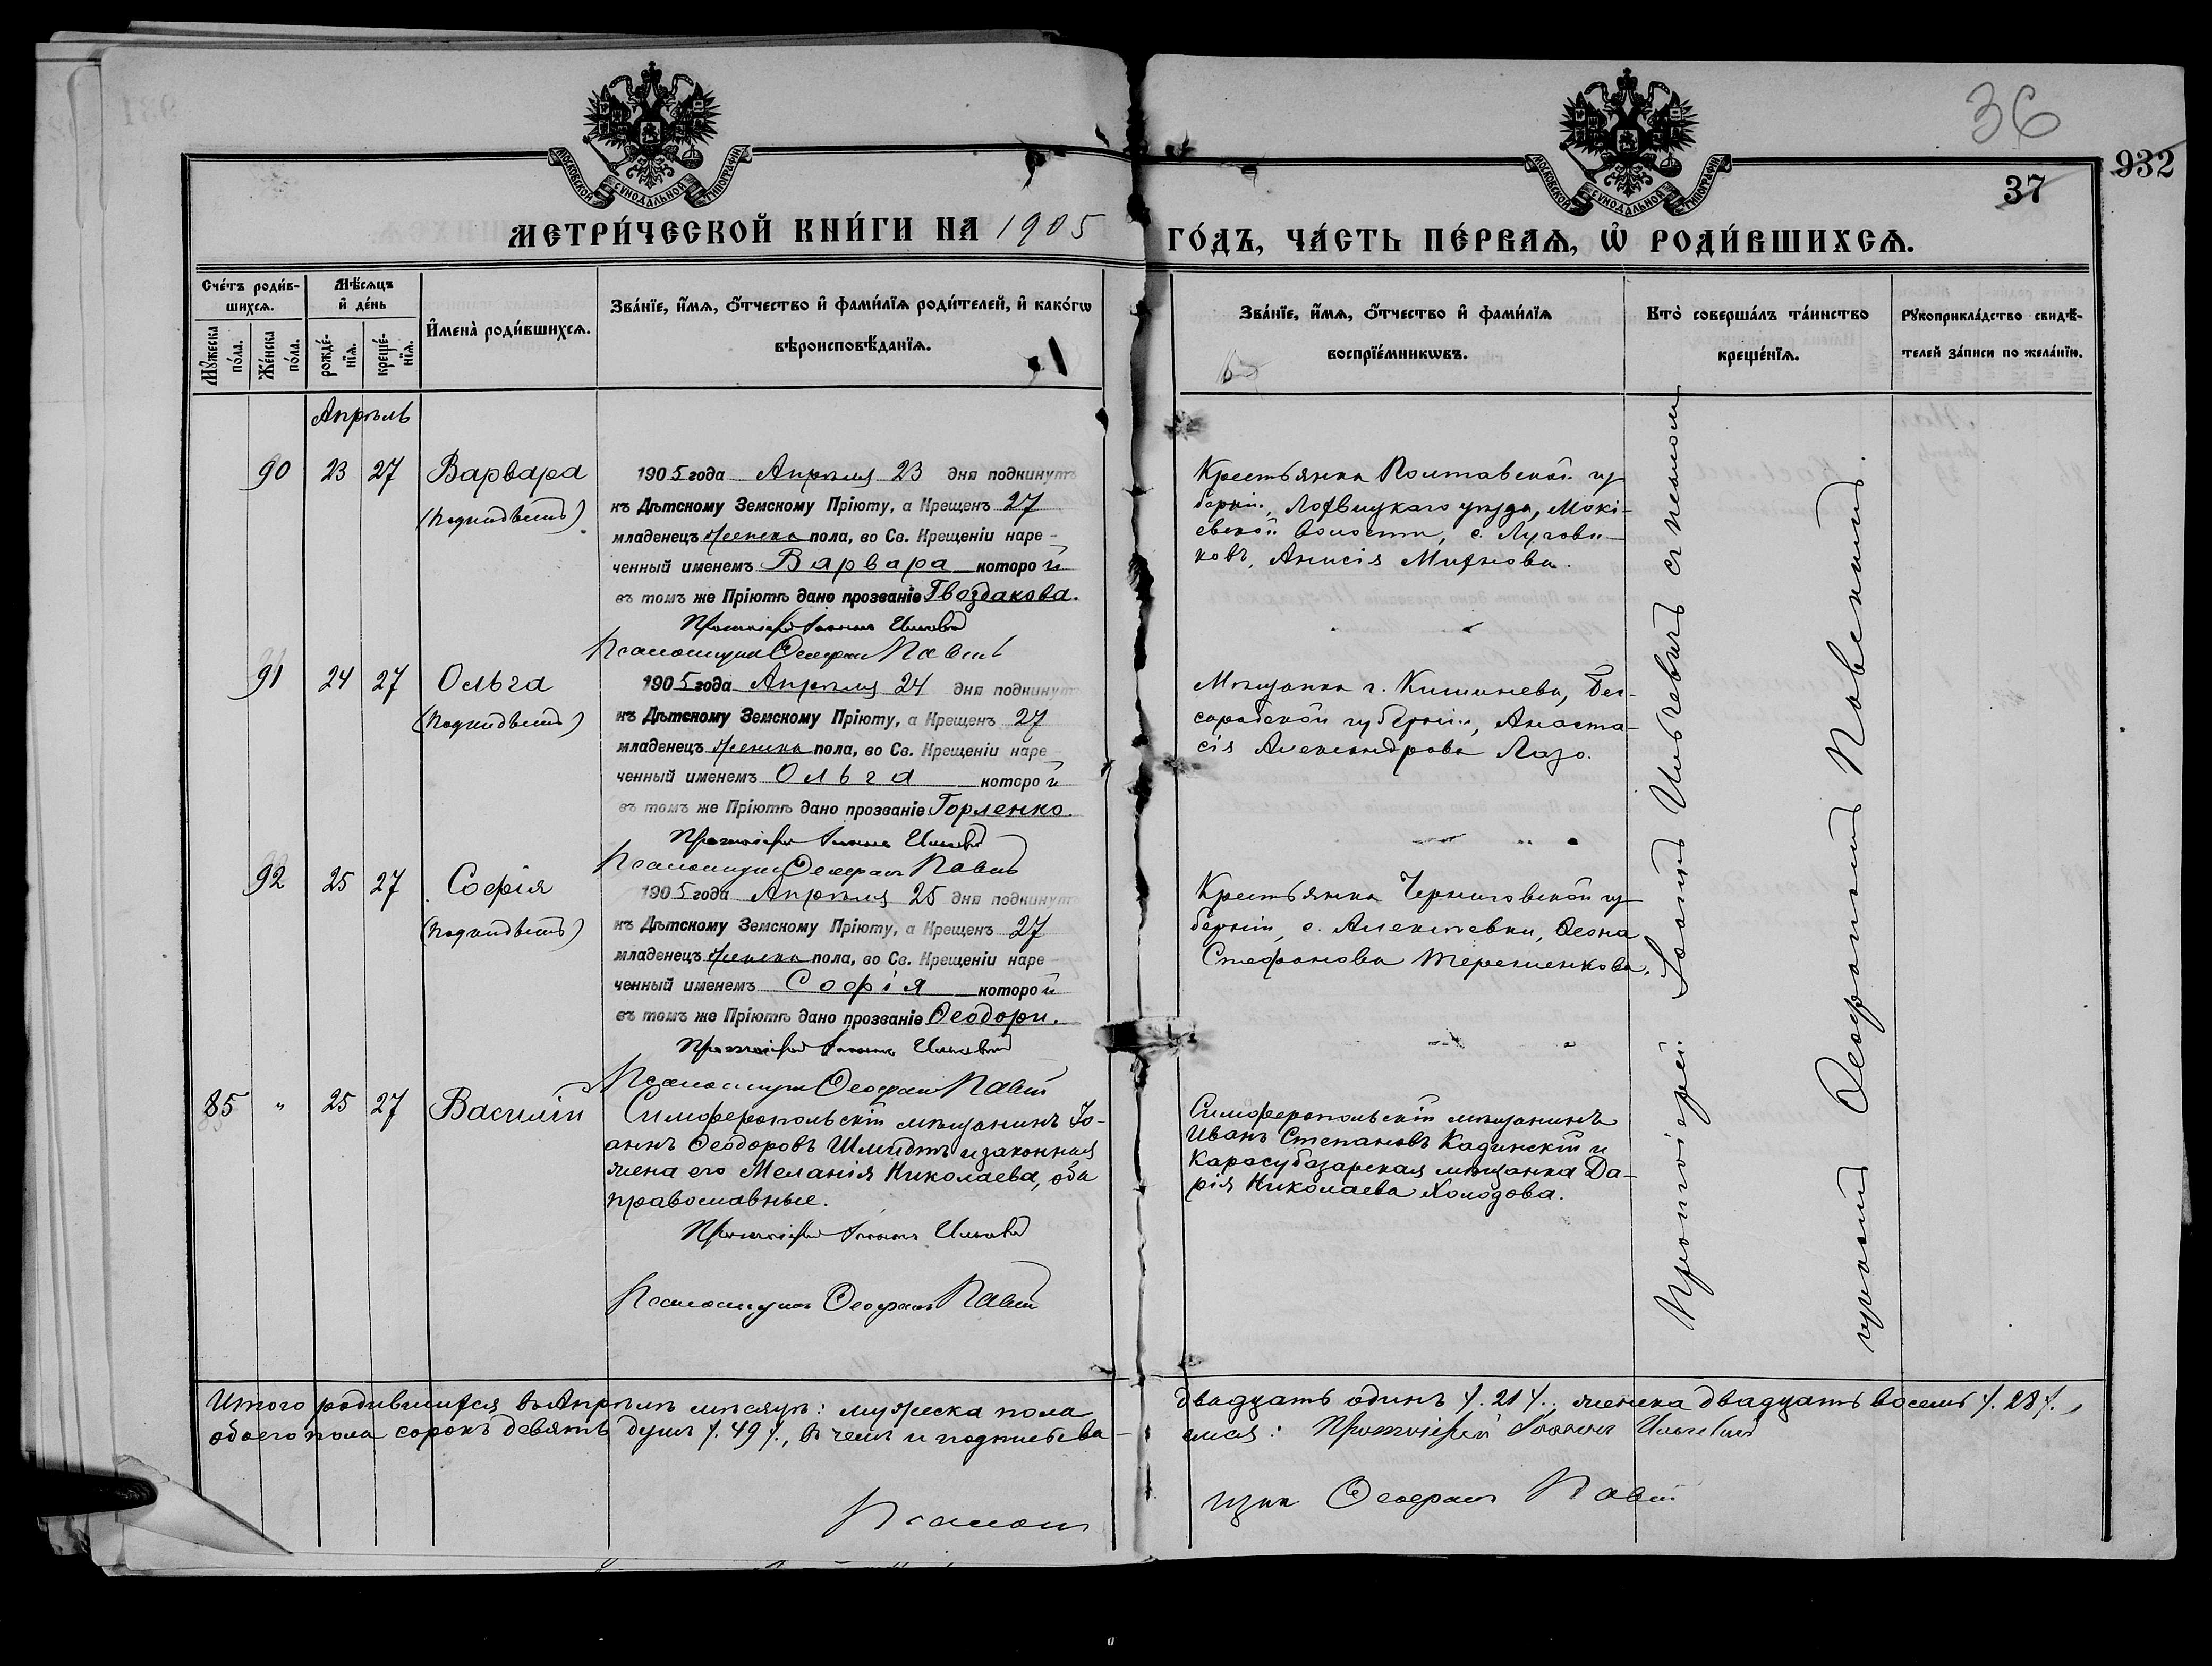 36
932
37
МОСКОВСКОЙ СѴНОДАЛЬНОЙ ТИПОГРАФІИ
МОСКОВСКОЙ СѴНОДАЛЬНОЙ ТИПОГРАФІИ
МЕТРИ́ЧЕСКОЙ КНИ́ГИ НА 1905 ГО́ДЪ, ЧА́СТЬ ПЕ́РВАѦ, Ѡ҆ РОДИ́ВШИХСѦ.
Сче́тъ роди́в-
шихсѧ.
Мꙋ́жеска по́ла.
Же́нска по́ла.
Мѣ́сѧцъ
и҆ де́нь
рожде́-нїѧ.
креще́-нїѧ.
И҆мена̀ роди́вшихсѧ.
Зва́нїе, и҆́мѧ, ѻ҆́тчество и҆ фами́лїѧ роди́телей, и҆ како́гѡ
вѣроисповѣ́данїѧ.
Зва́нїе, и҆́мѧ, ѻ҆́тчество и҆ фами́лїѧ
воспрїе́мникѡвъ.
Кто̀ соверша́лъ та́инство
креще́нїѧ.
Рꙋкоприкла́дство свидѣ́-
телей за́писи по жела́нїю.
Апрѣль
90 23 27 Варвара
(подкидышъ)
1905 года Апрѣля 23 дня подкинутъ
къ Дѣтскому Земскому Пріюту, а Крещенъ 27
младенецъ женска пола, во Св. Крещеніи наре-
ченный именемъ Варвара которой
въ томъ же Пріютѣ дано прозваніе Гвоздакова.
Протоіерей Іоаннъ Ильчевичъ
Псаломщикъ Ѳеофанъ Павскій
Крестьянка Полтавской гу
берніи, Лохвицкаго уѣзда, Мокі-
евской волости, с. Лугови-
ковъ, Анисія Михнова.
91 24 27 Ольга
(подкидышъ)
1905 года Апрѣля 24 дня подкинутъ
къ Дѣтскому Земскому Пріюту, а Крещенъ 27
младенецъ женска пола, во Св. Крещеніи наре-
ченный именемъ Ольга которой
въ томъ же Пріютѣ дано прозваніе Горленко.
Протоіерей Іоаннъ Ильчевичъ
Псаломщикъ Ѳеофанъ Павскій
Мѣщанка г. Кишинева, Бес-
сарабской губерніи, Анаста-
сія Александрова Лазо.
92 25 27 Софія
(подкидышъ)
1905 года Апрѣля 25 дня подкинутъ
къ Дѣтскому Земскому Пріюту, а Крещенъ 27
младенецъ женска пола, во Св. Крещеніи наре-
ченный именемъ Софія которой
въ томъ же Пріютѣ дано прозваніе Ѳеодори.
Протоіерей Іоаннъ Ильчевичъ
Псаломщикъ Ѳеофанъ Павскій
Крестьянка Черниговской гу
берніи, с. Алексѣевки, Ѳеона
Стефанова Терещенкова.
85 „ 25 27 Василій
Симферопольскій мѣщанинъ Іо-
аннъ Ѳеодоровъ Шмидтъ и законная
жена его Меланія Николаева, оба
православные.
Протоіерей Іоаннъ Ильчевичъ
Псаломщикъ Ѳеофанъ Павскій
Симферопольскій мѣщанинъ
Иванъ Степановъ Кадинскій и
Карасубазарская мѣщанка Да-
рія Николаева Холодова.
Протоіерей Іоаннъ Ильчевичъ съ псалом
щикомъ Ѳеофаномъ Павскимъ.
Итого родившихся въ Апрѣлѣ мѣсяцѣ: мужеска пола двадцать одинъ /. 21 /., женска двадцать восемь /. 28 /.,
обоего пола сорокъ девять душъ /. 49 /., въ чемъ и подписуева-
емся: Протоіерей Іоаннъ Ильчевичъ
Псалом
щикъ Ѳеофанъ Павскій